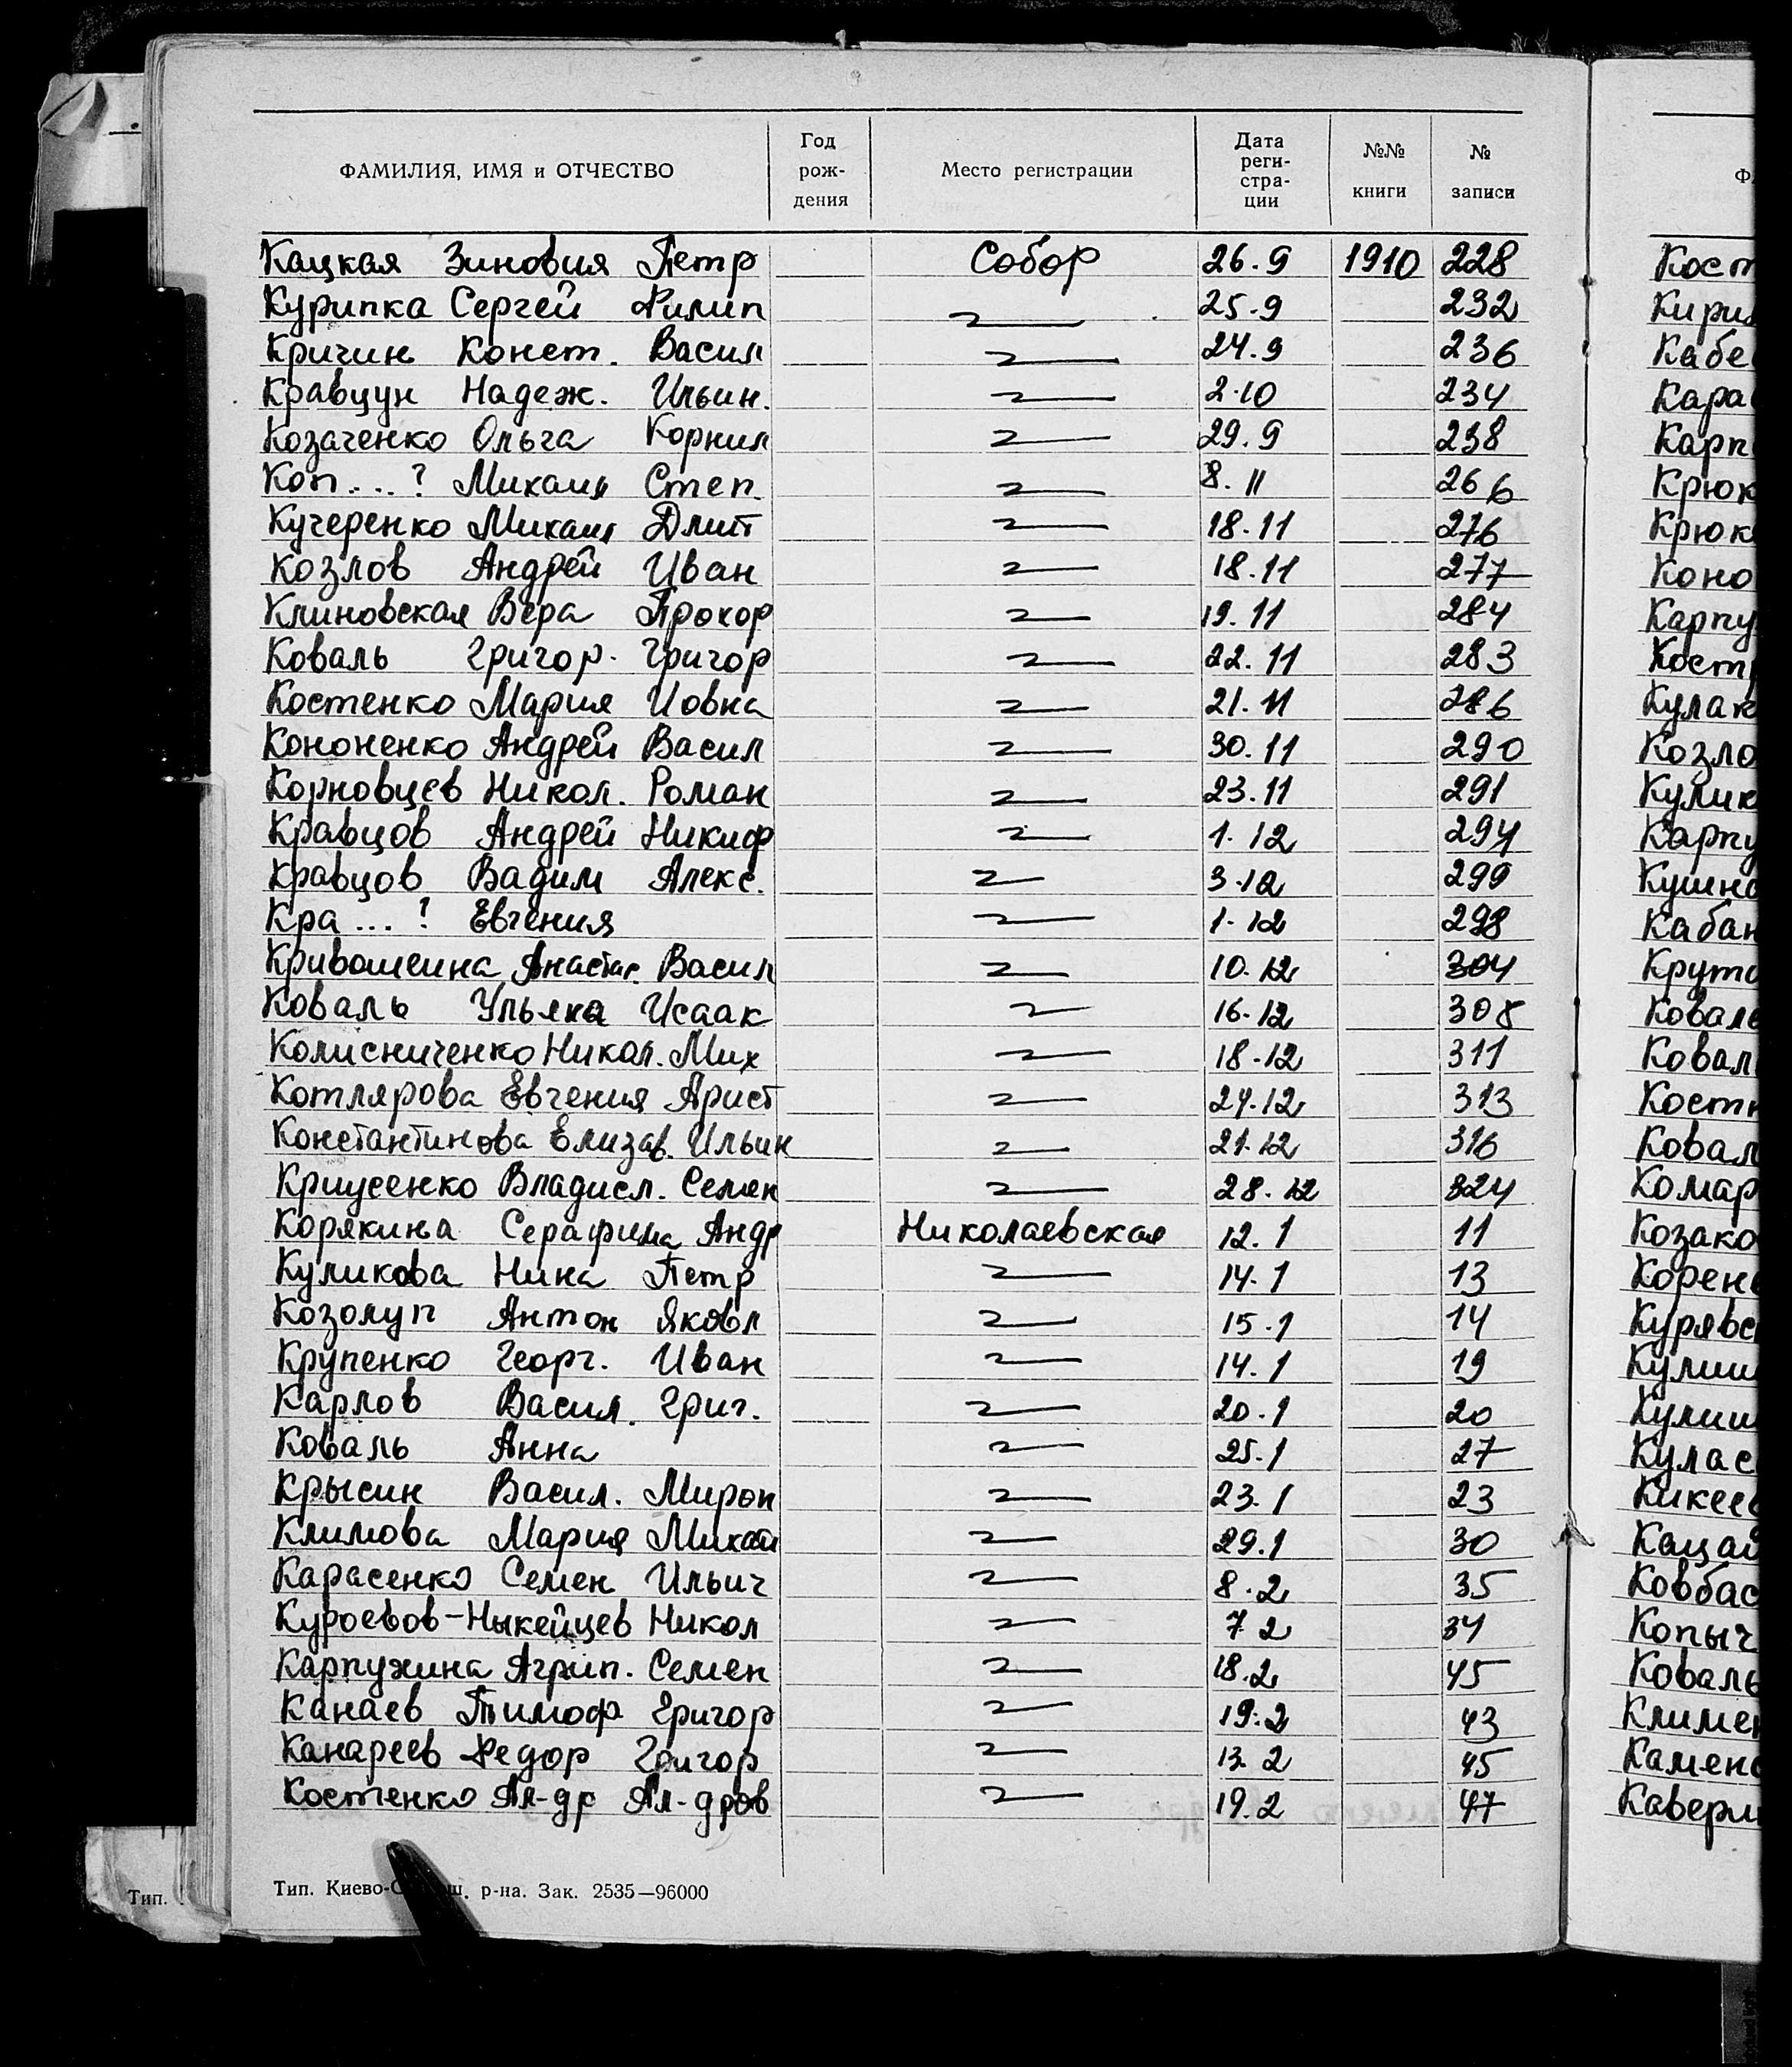 ФАМИЛИЯ, ИМЯ и ОТЧЕСТВО Год рож-дения Место регистрации Дата реги-стра-ции №№ книги № записи
Кацкая Зиновия Петр Собор 26.9 1910 228
Курипка Сергей Филип 〃 25.9 232
Кричин Конст. Васил 〃 24.9 236
Кравцун Надеж. Ильин. 〃 2.10 234
Козаченко Ольга Корнил 〃 29.9 238
Коп...? Михаил Степ. 〃 8.11 266
Кучеренко Михаил Дмит 〃 18.11 276
Козлов Андрей Иван 〃 18.11 277
Клиновская Вера Прохор 〃 19.11 284
Коваль Григор. Григор 〃 22.11 283
Костенко Мария Иовна 〃 21.11 286
Кононенко Андрей Васил 〃 30.11 290
Корновцев Никол. Роман 〃 23.11 291
Кравцов Андрей Никиф 〃 1.12 294
Кравцов Вадим Алекс. 〃 3.12 299
Кра...? Евгения 〃 1.12 298
Кривошеина Анастас. Васил 〃 10.12 304
Коваль Ульяна Исаак 〃 16.12 308
Колисниченко Никол. Мих 〃 18.12 311
Котлярова Евгения Арист 〃 24.12 313
Константинова Елизав. Ильин 〃 21.12 316
Криусенко Владисл. Семен 〃 28.12 324
Корякина Серафима Андр Николаевская 12.1 11
Куликова Нина Петр 〃 14.1 13
Козолуп Антон Яковл 〃 15.1 14
Крупенко Георг. Иван 〃 14.1 19
Карлов Васил. Григ. 〃 20.1 20
Коваль Анна 〃 25.1 27
Крысин Васил. Мирон 〃 23.1 23
Климова Мария Михай 〃 29.1 30
Карасенко Семен Ильич 〃 8.2 35
Куроедов-Ныкейцев Никол 〃 7.2 34
Карпухина Агрип. Семен 〃 18.2 45
Канаев Тимоф Григор 〃 19.2 43
Канареев Федор Григор 〃 13.2 45
Костенко Ал-др Ал-дров 〃 19.2 47
Тип. Киево- р-на. Зак. 2535—96000
Тип.
Кост
Кири
Кабе
Кара
Карп
Крюк
Крюк
Коно
Карпу
Кост
Кулак
Козло
Кулик
Карпу
Кушна
Кабан
Крут
Ковал
Ковал
Кост
Ковал
Комар
Козако
Корен
Курявс
Кулиш
Кулиш
Кулас
Кикее
Кацай
Ковбас
Копыч
Коваль
Климен
Камен
Кавери